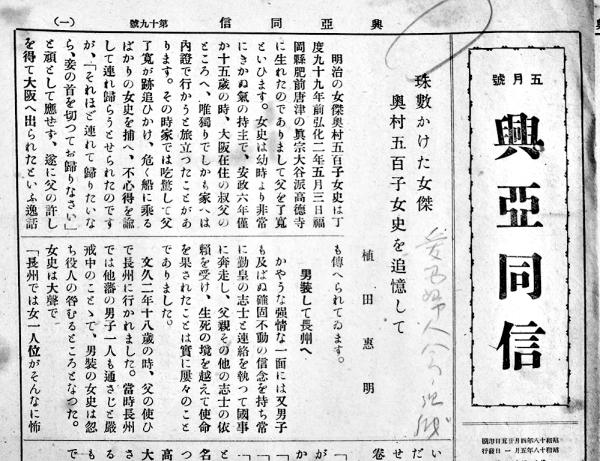 （一） 興亞同信 第十九號
五月號
興亞同信
昭和十八年四月廿五日印刷
昭和十八年五月一日發行
珠數かけた女傑
奥村五百子女史を追憶して
植田惠明
明治の女傑奥村五百子女史は丁
度九十九年前弘化二年五月三日福
岡縣肥前唐津の眞宗大谷派高德寺
に生れたのでありまして父を了寬
といひます。女史は幼時より非常
にきかぬ氣の持主で、安政六年僅
か十五歲の時、大阪在住の叔父の
ところへ、唯獨りでしかも家へは
內證で行かうと旅立つたことがあ
ります。その時家では吃驚して父
了寬が跡追ひかけ、危く船に乘る
ばかりの女史を捕へ、不心得を諭
して連れ歸らうとせられたのです
が、「それほど連れて歸りたいな
ら、妾の首を切つてお歸りなさい」
と頑として應せず、遂に父の許し
を得て大阪へ出られたといふ逸話
も傳へられてゐます。
男裝して長州へ
かやうな强情な一面には又男子
も及ばぬ確固不動の信念を持ち常
に勤皇の志士と連絡を執つて國事
に奔走し、父親その他の志士の依
賴を受け、生死の境を越えて使命
を果されたことは實に屢々のこと
でありました。
文久二年十八歲の時、父の使ひ
で長州に行かれました。當時長州
では他藩の男子一人も通さじと嚴
戒中のことゝて、男裝の女史は忽
ち役人の咎むるところとなつた。
女史は大聲で
「長州では女一人位がそんなに怖